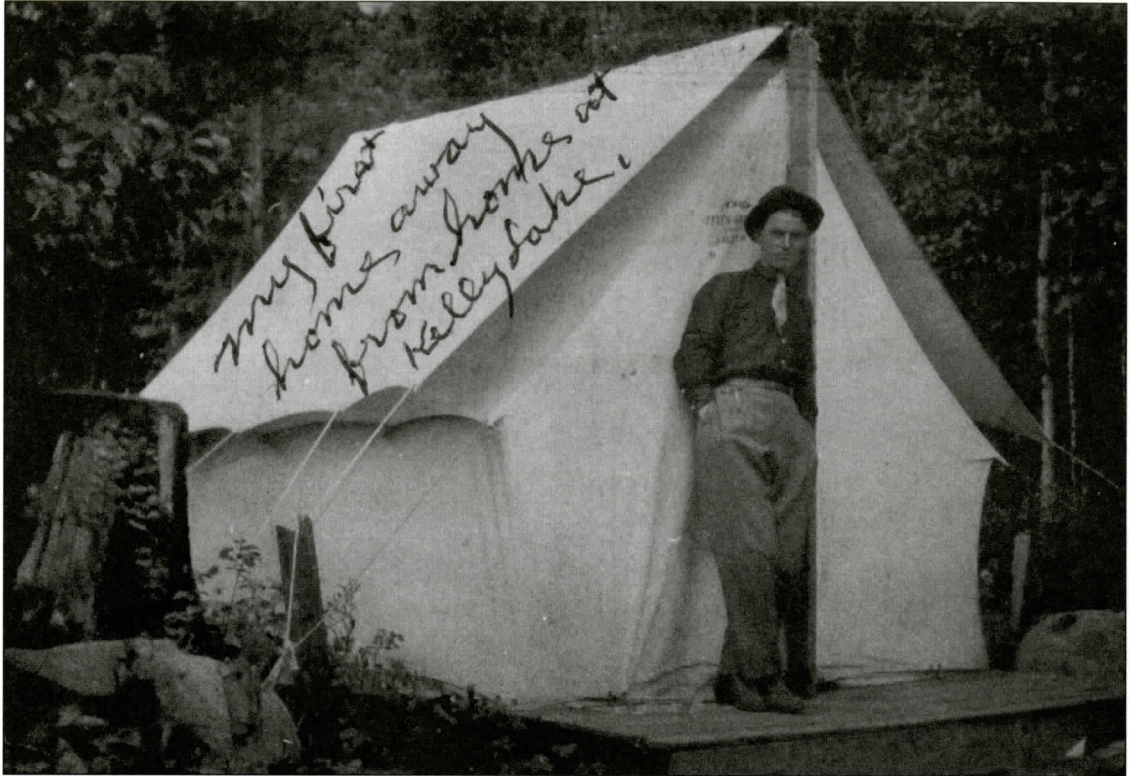 my first
home away
from home at
Kelly Lake.